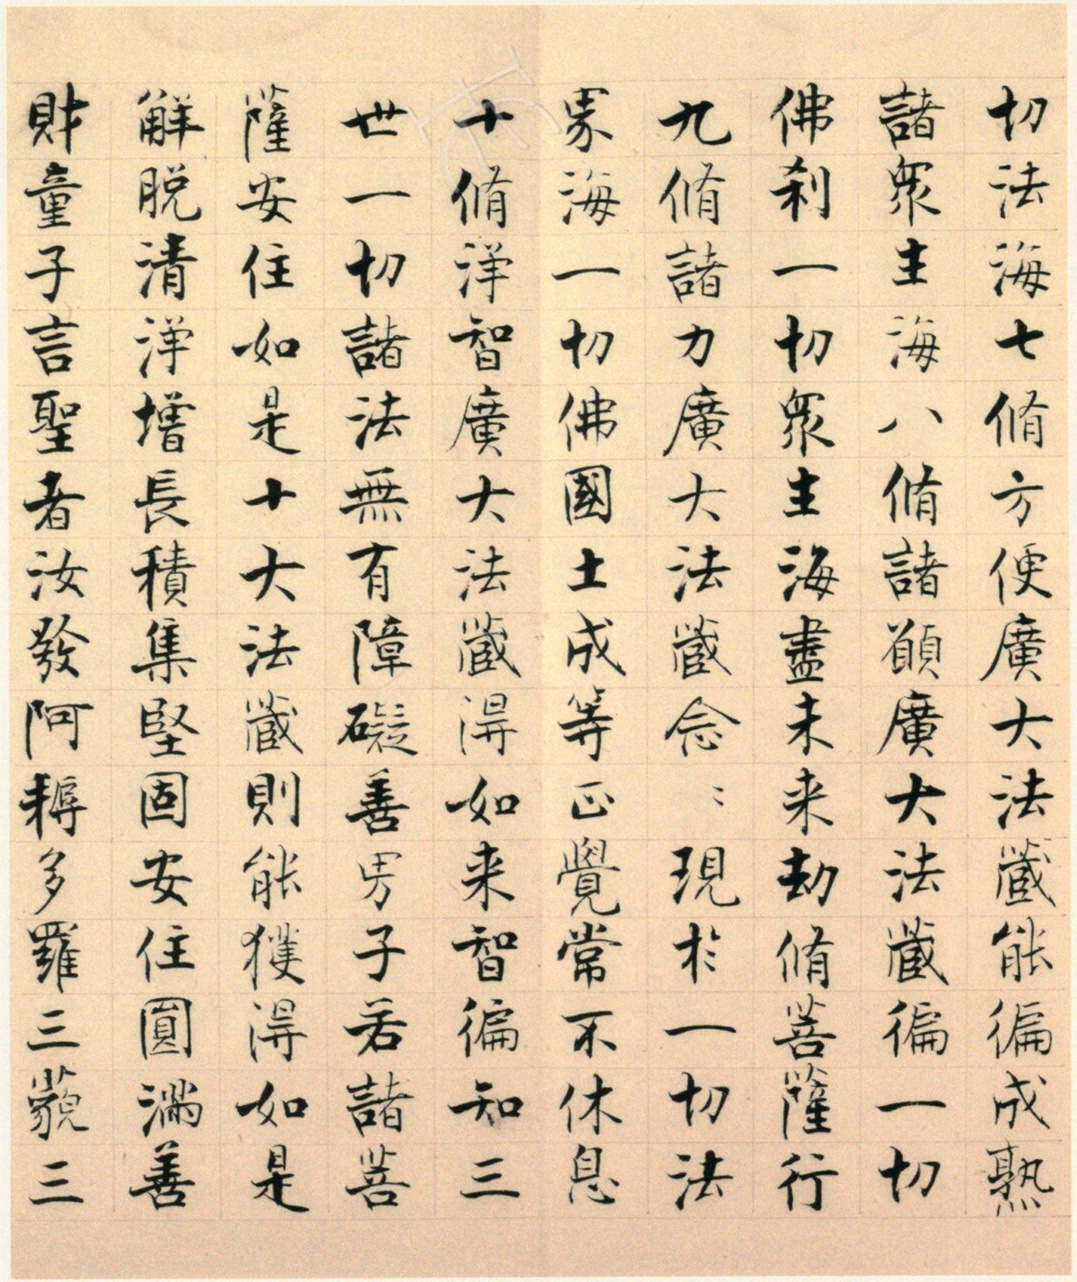 切法海七脩方便廣大法藏能徧成熟
諸眾生海八脩諸願廣大法藏徧一切
佛刹一切眾生海盡未来劫脩菩薩行
九脩諸力廣大法藏念〻現於一切法
界海一切佛國土成等正覺常不休息
十脩淨智廣大法藏得如来智徧知三
世一切諸法無有障礙善男子若諸菩
薩安住如是十大法藏則能獲得如是
解脱清淨增長積集堅固安住圓滿善
財童子言聖者汝發阿耨多羅三藐三